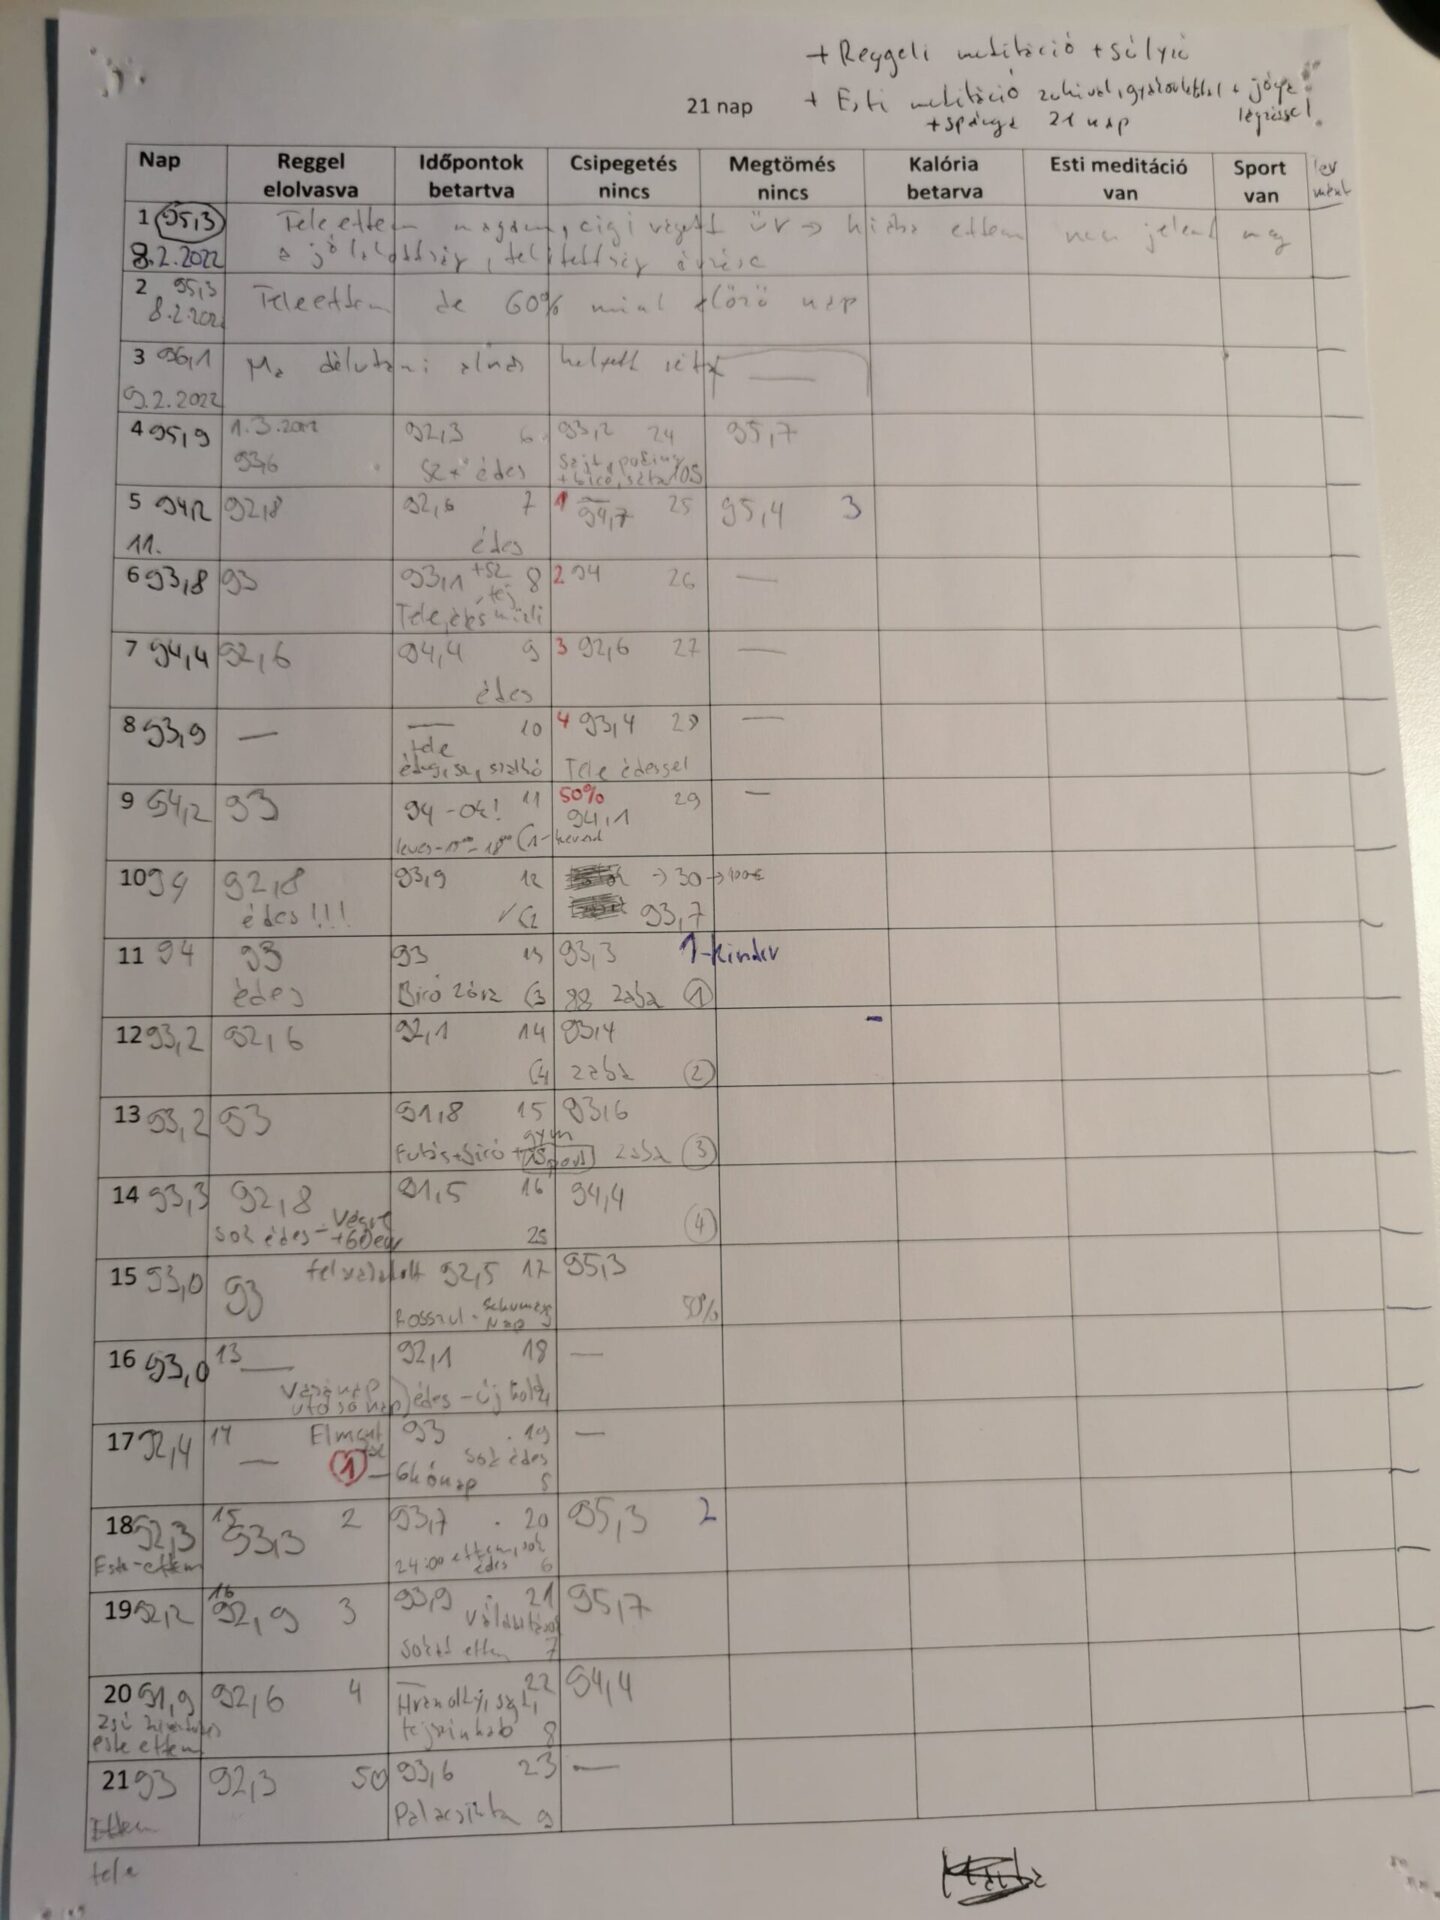 + Reggeli meditáció + súlyzó
21 nap
+ Esti meditáció + jóga
légzéssel.
+ spárga 21 nap
Nap Reggel elolvasva Időpontok betartva Csipegetés nincs Megtömés nincs Kalória betarva Esti meditáció van Sport van
1 95,3 Teleettem magam, cigi végett űr → hiába ettem nem jelent meg
8.2.2022 a jóllakottság, telítettség érzése
2 95,3 Teleettem de 60% mint előző nap
8.2.202
3 96,1 Ma délutáni alvás helyett séta —
9.2.2022
4 95,9 1.3.2022 92,3 6 93,2 24 95,7
93,6 édes
5 94,2 92,8 92,6 7 1 94,7 25 95,4 3
11. édes
6 93,8 93 93,1 +sz 8 2 94 26 —
tej
Tele, édes müzli
7 94,4 92,6 94,4 9 3 92,6 27 —
édes
8 93,9 — — 10 4 93,4 28 —
tele
Tele édessel
9 94,2 93 94 - ok! 11 50% 29 —
94,1
10 94 92,8 93,9 12 → 30 →
édes!!! ✓ 2 93,7
11 94 93 93 13 93,3 1 - kinder
édes Bíró 3 88 zaba 1
12 93,2 92,6 92,1 14 93,4 -
4 zaba 2
13 93,2 93 91,8 15 93,6
gym
Futás + Bíró + zaba 3
14 93,3 92,8 91,5 16 94,4
sok édes - Végre 25 4
15 93,0 93 92,5 17 95,3
Rosszul - 50%
Nap
16 93,0 13 — 92,1 18 —
Vasárnap édes - új
utolsó nap
17 92,4 14 — Elment 93 . 19 —
1 — 6 hónap sok édes 5
18 92,3 15 93,3 2 93,7 . 20 95,3 2
Este - ettem 24:00 ettem, sok
édes 6
19 92,2 16 92,9 3 93,9 . 21 95,7
sokat ettem 7
20 91,9 92,6 4 — 22 94,4
este ettem tejszínhab 8
21 93 92,3 5 93,6 23 —
Ettem Palacsinta 9
tele